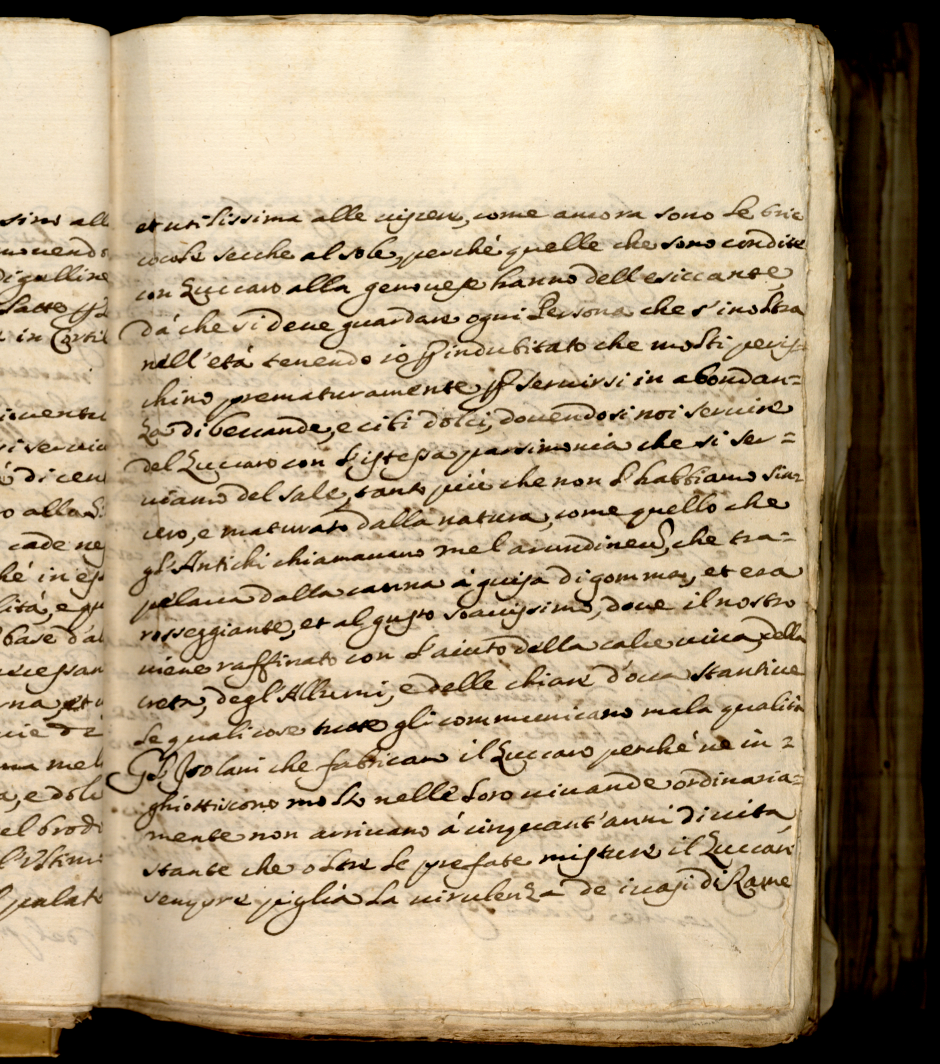 sino all
mouendo
di galline
fatto
e in Cortil
iouentu
si seruia
di cen
o alla
cade ne
hé in es
lità, e
base d'al
necessari
rna, et
uie di
ma mel
a, e dol
el brodo
l'Ultimo
palato
et utilissima alle uipere, come ancora sono le brie
cocole secche al sole, perché quelle che sono condite
con Zuccaro alla genouese hanno dell'esiccante,
dà che si deue guardare ogni Persona che s'inoltra
nell'età tenendo io p indubitato che molti peris
chino prematuramente p seruirsi in abondan=
za di beuande, e cibi dolci, douendosi noi seruire
del Zuccaro con l'istessa parsimonia che si ser=
uiamo del sale, tanto più che non l'habbiamo sin=
cero, e maturato dalla natura, come quello che
gl'Antichi chiamauano mel arundineu, che tra=
pelaua dalla canna à guisa di gomma, et era
rosseggiante, et al gusto soauissimo, doue il nostro
uiene raffinato con l'aiuto della calce uiua, della
creta, degl'Allumi, e delle chiare d'oua stantiue
le quali cose tutte gli communicano mala qualità
Gl'Isolani che fabricano il Zuccaro perché ne in=
ghiottiscono molto nelle loro uiuande ordinaria=
mente non arriuano à cinquant'anni di uita,
stante che oltre le prefate misture il Zuccaro
sempre piglia la uirulenza de i uasi di Rame